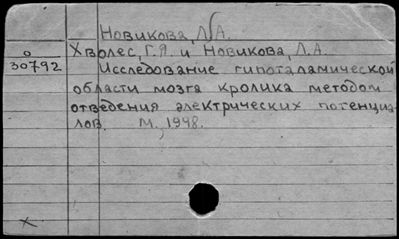 Новикова, Л.А.
Хволес, Г.Я. и Новикова, Л.А.
О
30792
Исследование гипоталамической
области мозга кролика методом
отведения электрических потенциа-
лов. М., 1948.
х